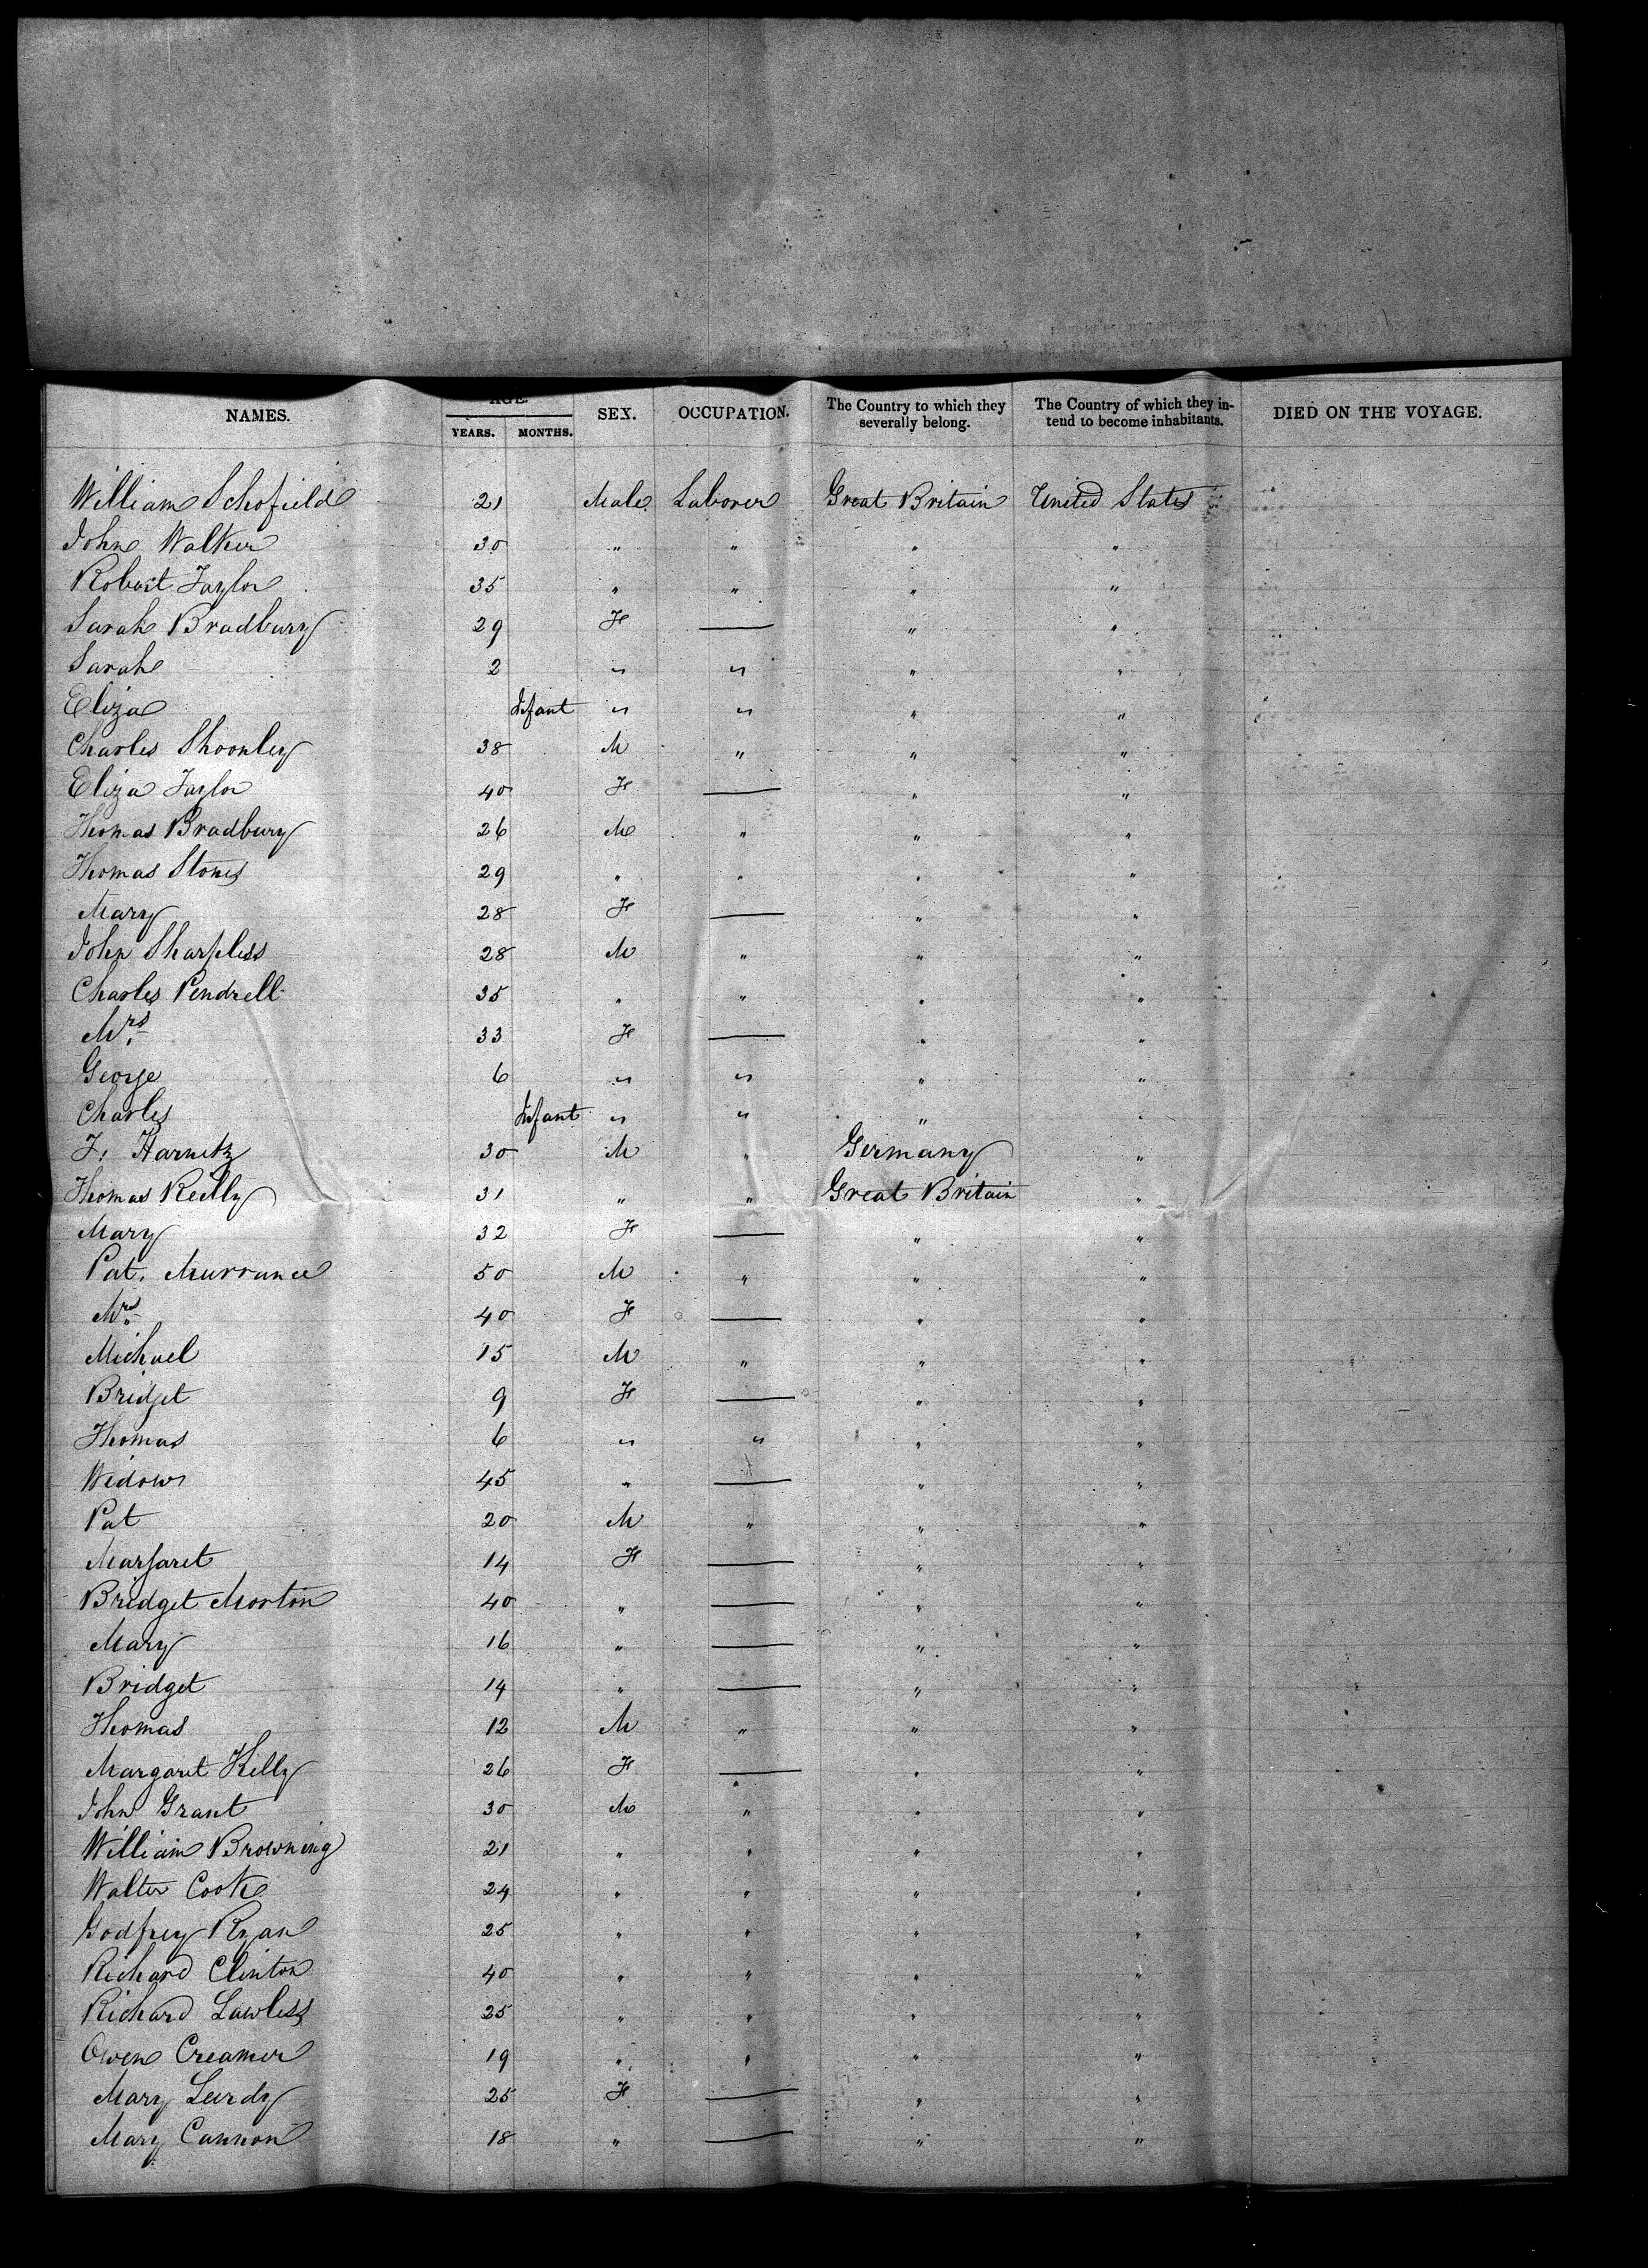 NAMES. AGE. SEX. OCCUPATION. The Country to which they severally belong. The Country of which they intend to become inhabitants. DIED ON THE VOYAGE.
YEARS. MONTHS.
William Schofield 21 Male Laborer Great Britain United States
John Walker 30 " " " "
Robert Taylor 35 " " " "
Sarah Bradbury 29 F — " "
Sarah 2 " " " "
Eliza Infant " " " "
Charles Shoonley 38 M " " "
Eliza Taylor 40 F — " "
Thomas Bradbury 26 M " " "
Thomas Stones 29 " " " "
Mary 28 F — " "
John Sharpless 28 M " " "
Charles Pendrell 35 " " " "
Mrs. 33 F — " "
George 6 " " " "
Charles Infant " " " "
F. Harnetz 30 M " Germany "
Thomas Reilly 31 " " Great Britain "
Mary 32 F — " "
Pat. Murrance 50 M " " "
Mrs. 40 F — " "
Michael 15 M " " "
Bridget 9 F — " "
Thomas 6 " " " "
Widow 45 " — " "
Pat 20 M " " "
Margaret 14 F — " "
Bridget Morton 40 " — " "
Mary 16 " — " "
Bridget 14 " — " "
Thomas 12 M " " "
Margaret Kelly 26 F — " "
John Grant 30 M " " "
William Browning 21 " " " "
Walter Cook 24 " " " "
Godfrey Ryan 25 " " " "
Richard Clinton 40 " " " "
Richard Lawless 25 " " " "
Owen Creamer 19 " " " "
Mary Lurdy 25 F — " "
Mary Cannon 18 " — " "